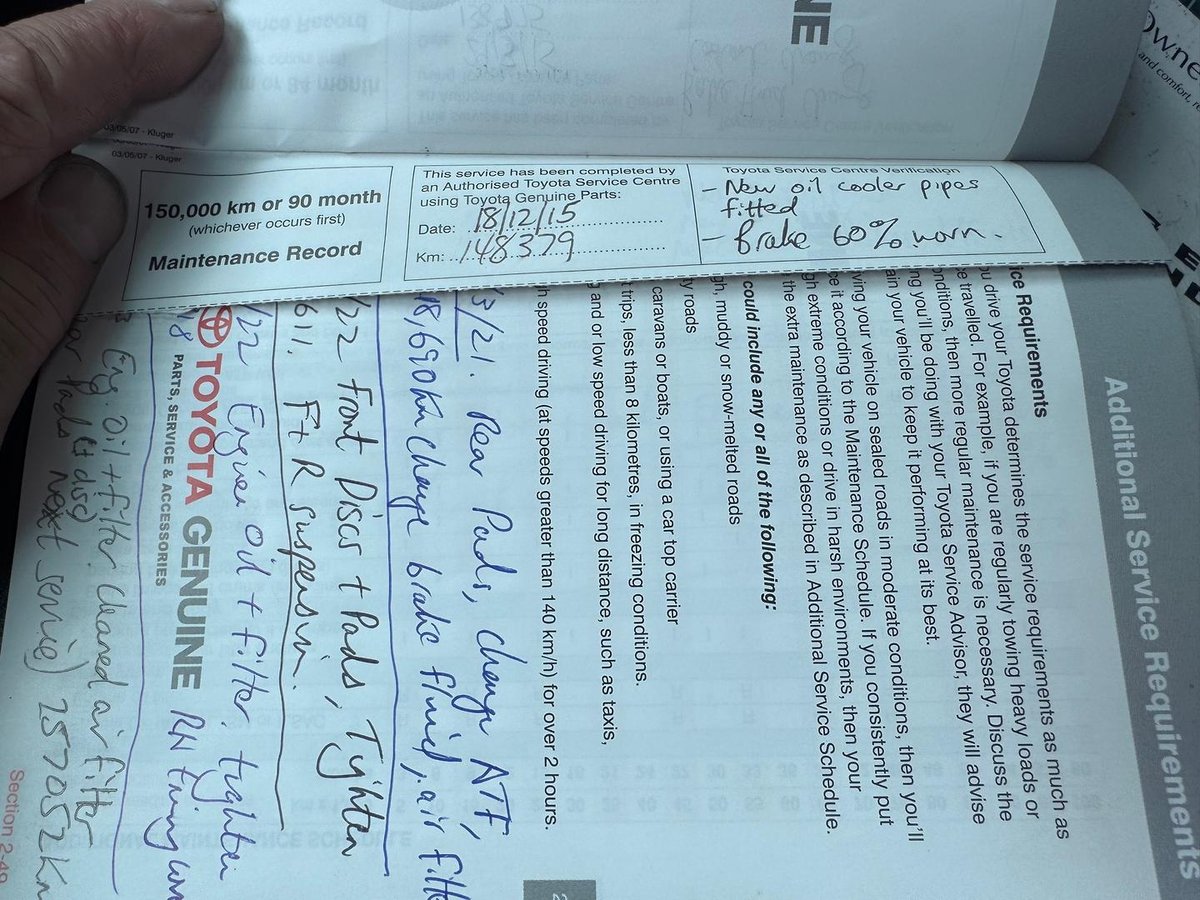 NE
Owne
and comfort, re
03/05/07 - Kluger
03/05/07 - Kluger
150,000 km or 90 month
(whichever occurs first)
Maintenance Record
This service has been completed by
an Authorised Toyota Service Centre
using Toyota Genuine Parts:
Date: 18/12/15
Km: 148379
Toyota Service Centre Verification
- New oil cooler pipes
fitted
- Brake 60% worn.
Additional Service Requirements
ice Requirements
ou drive your Toyota determines the service requirements as much as
e travelled. For example, if you are regularly towing heavy loads or
onditions, then more regular maintenance is necessary. Discuss the
ng you'll be doing with your Toyota Service Advisor, they will advise
ain your vehicle to keep it performing at its best.
ving your vehicle on sealed roads in moderate conditions, then you'll
e it according to the Maintenance Schedule. If you consistently put
gh extreme conditions or drive in harsh environments, then your
the extra maintenance as described in Additional Service Schedule.
could include any or all of the following:
gh, muddy or snow-melted roads
y roads
caravans or boats, or using a car top carrier
t trips, less than 8 kilometres, in freezing conditions.
g and or low speed driving for long distance, such as taxis,
h speed driving (at speeds greater than 140 km/h) for over 2 hours.
3/21. Rear Pads, change ATF,
18,690km change brake fluid, air filte
/22 Front Discs + Pads, Tighten
611. F + R suspension.
/22 Engine Oil + filter, tighten
TOYOTA GENUINE
PARTS, SERVICE & ACCESSORIES
RH timing
Eng. oil + filter. Cleaned air filter
ear Pads + disc)
next service) 257052 Km
Section 2-49